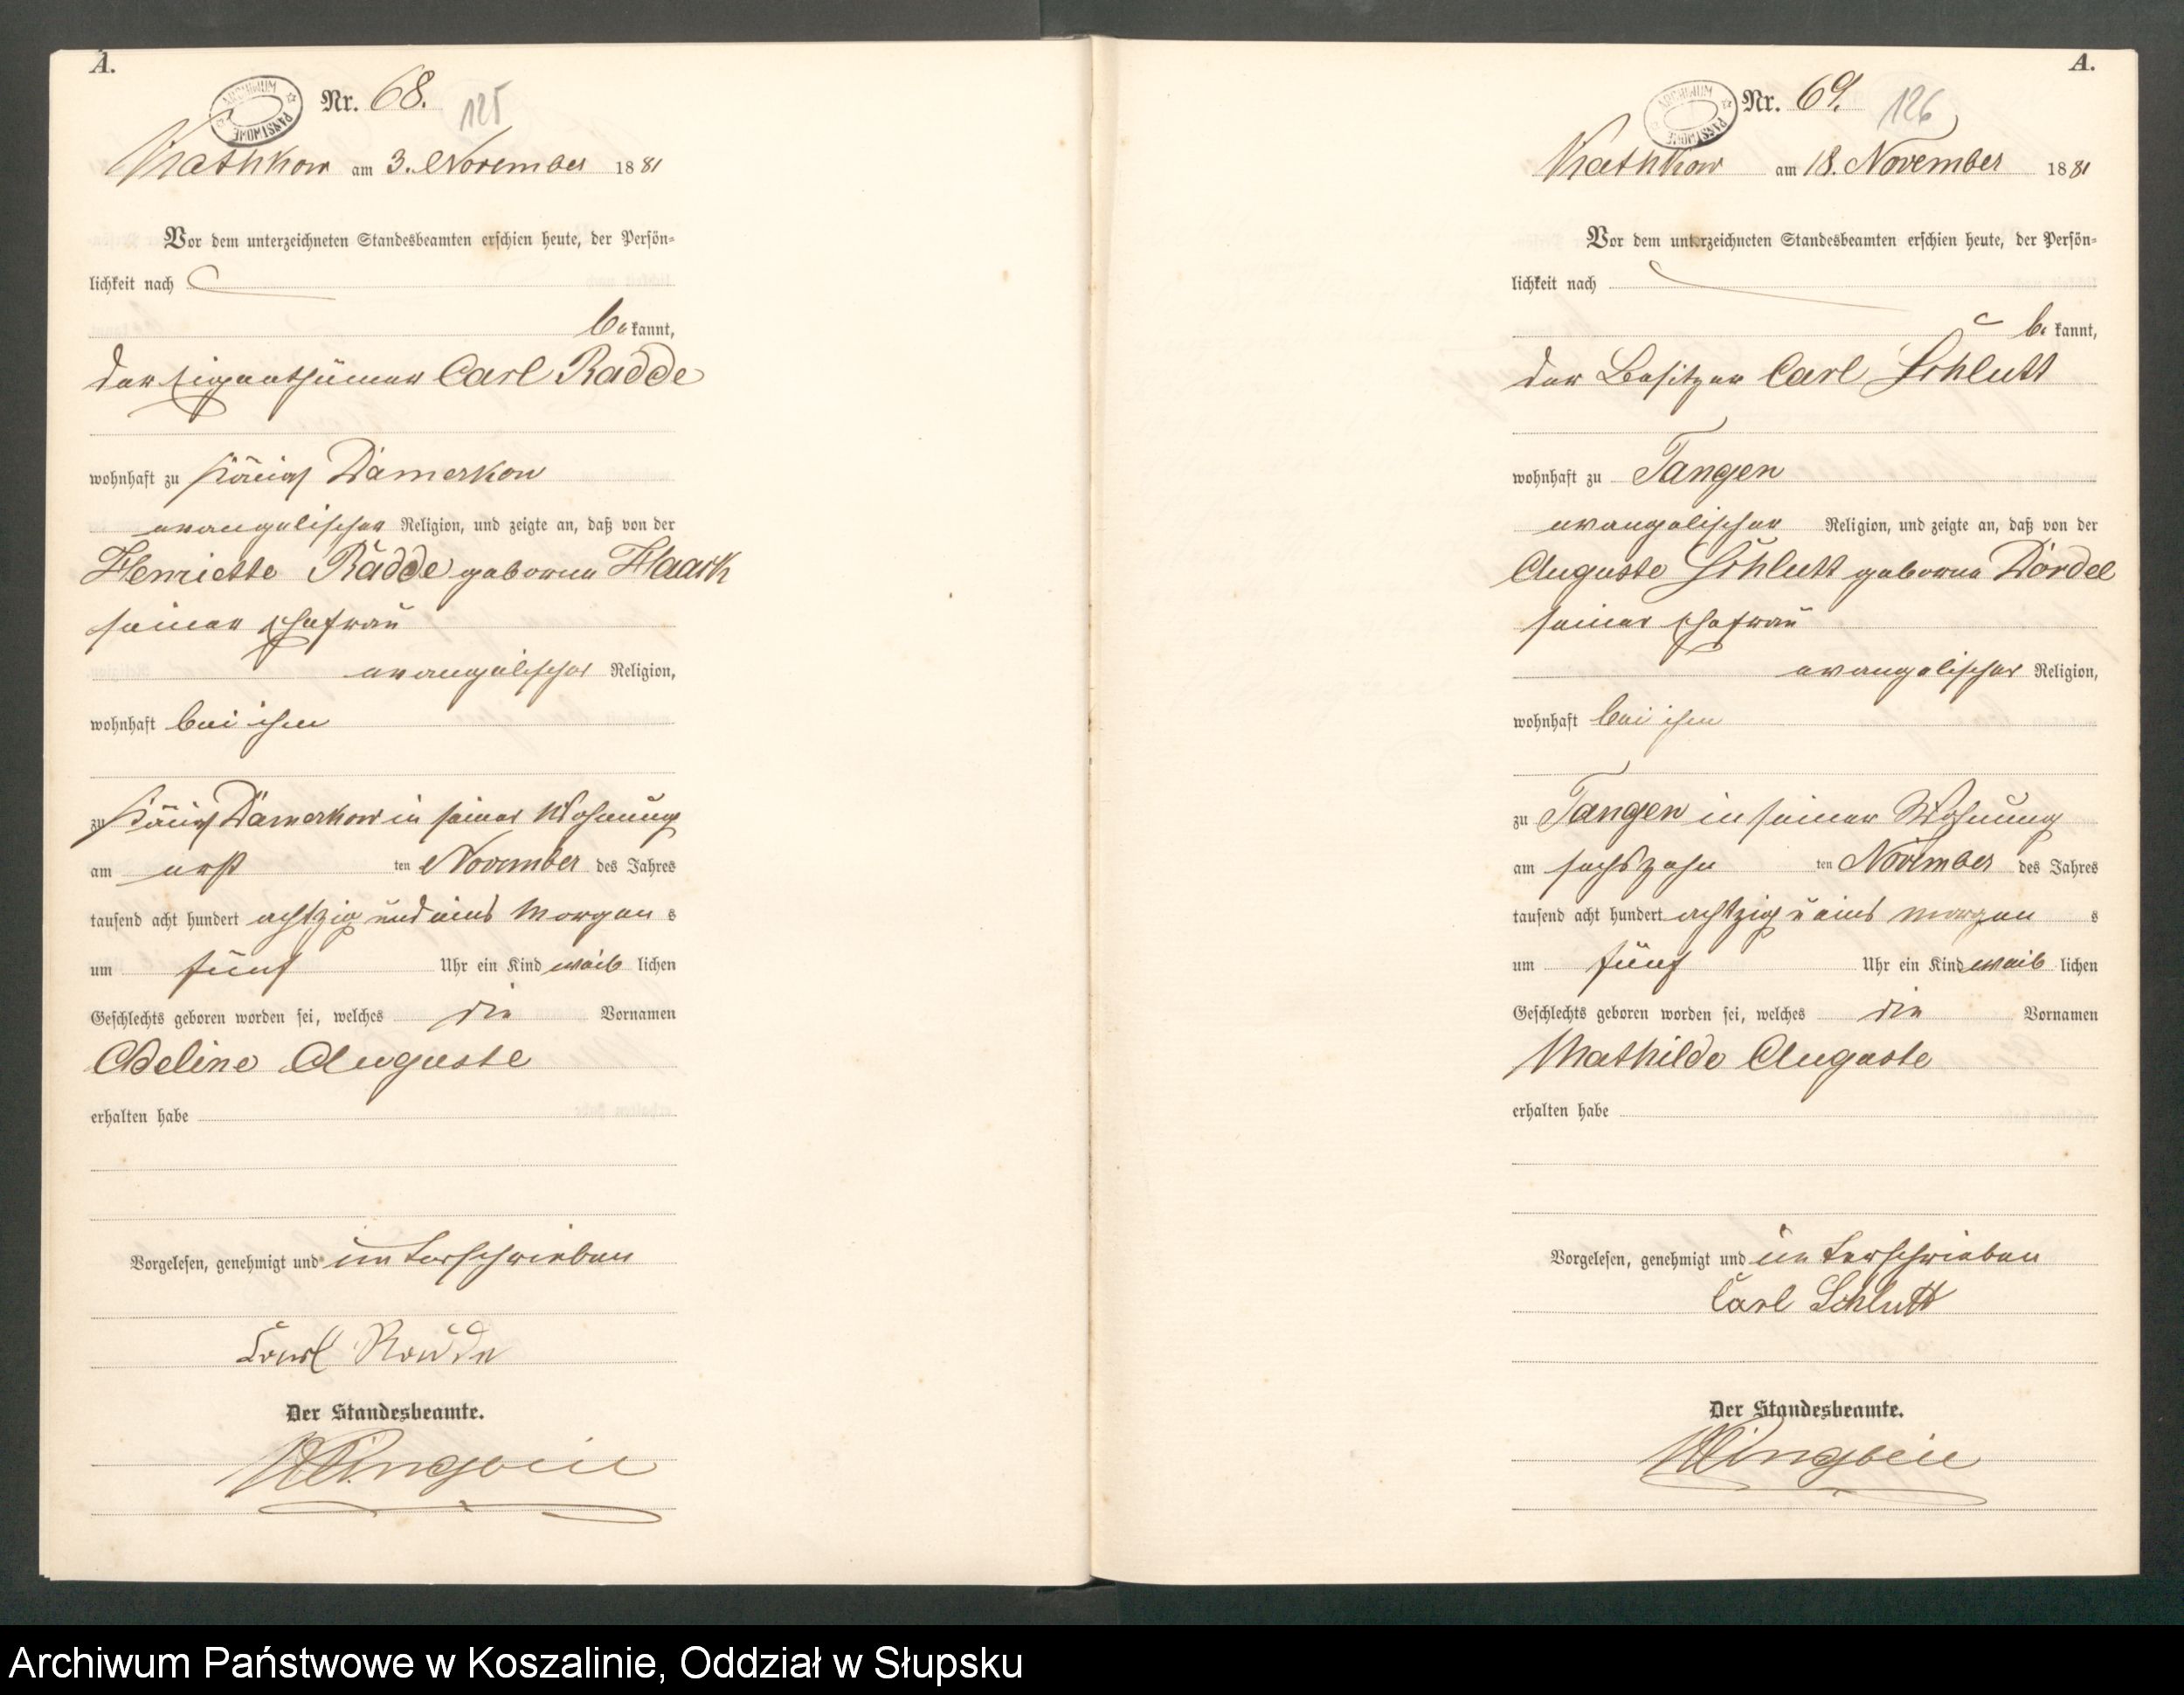 A.
ARCHIWUM PAŃSTWOWE
Nr. 68.
125
am 3. November 1881
Vor dem unterzeichneten Standesbeamten erschien heute, der Persön-
lichkeit nach
bekannt,
der Eigenthümer Carl Radde
wohnhaft zu Königl Damerkow
evangelischer Religion, und zeigte an, daß von der
Henriette Radde geborne Haack
seiner Ehefrau
evangelischer Religion,
wohnhaft bei ihm
zu Königl Damerkow in seiner Wohnung
am erst ten November des Jahres
tausend acht hundert achtzig und eins Morgens
um fünf Uhr ein Kind weiblichen
Geschlechts geboren worden sei, welches die Vornamen
Adeline Auguste
erhalten habe
Vorgelesen, genehmigt und unterschrieben
Carl Radde
Der Standesbeamte.
A.
ARCHIWUM PAŃSTWOWE
Nr. 69.
126
am 18. November 1881
Vor dem unterzeichneten Standesbeamten erschien heute, der Persön-
lichkeit nach
bekannt,
der Besitzer Carl Schlutt
wohnhaft zu Tangen
evangelischer Religion, und zeigte an, daß von der
Auguste Schlutt geborne Dördel
seiner Ehefrau
evangelischer Religion,
wohnhaft bei ihm
zu Tangen in seiner Wohnung
am sechszehn ten November des Jahres
tausend acht hundert achtzig u eins morgens
um fünf Uhr ein Kind weiblichen
Geschlechts geboren worden sei, welches die Vornamen
Mathilde Auguste
erhalten habe
Vorgelesen, genehmigt und unterschrieben
Carl Schlutt
Der Standesbeamte.
Archiwum Państwowe w Koszalinie, Oddział w Słupsku